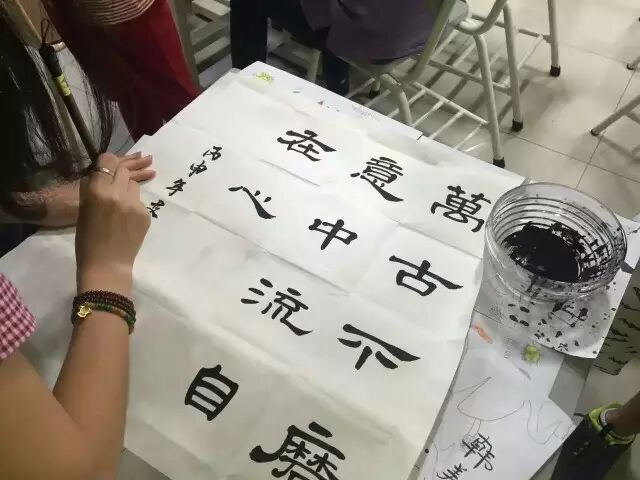 萬古不磨
意中流自
在心
丙申年
韩美